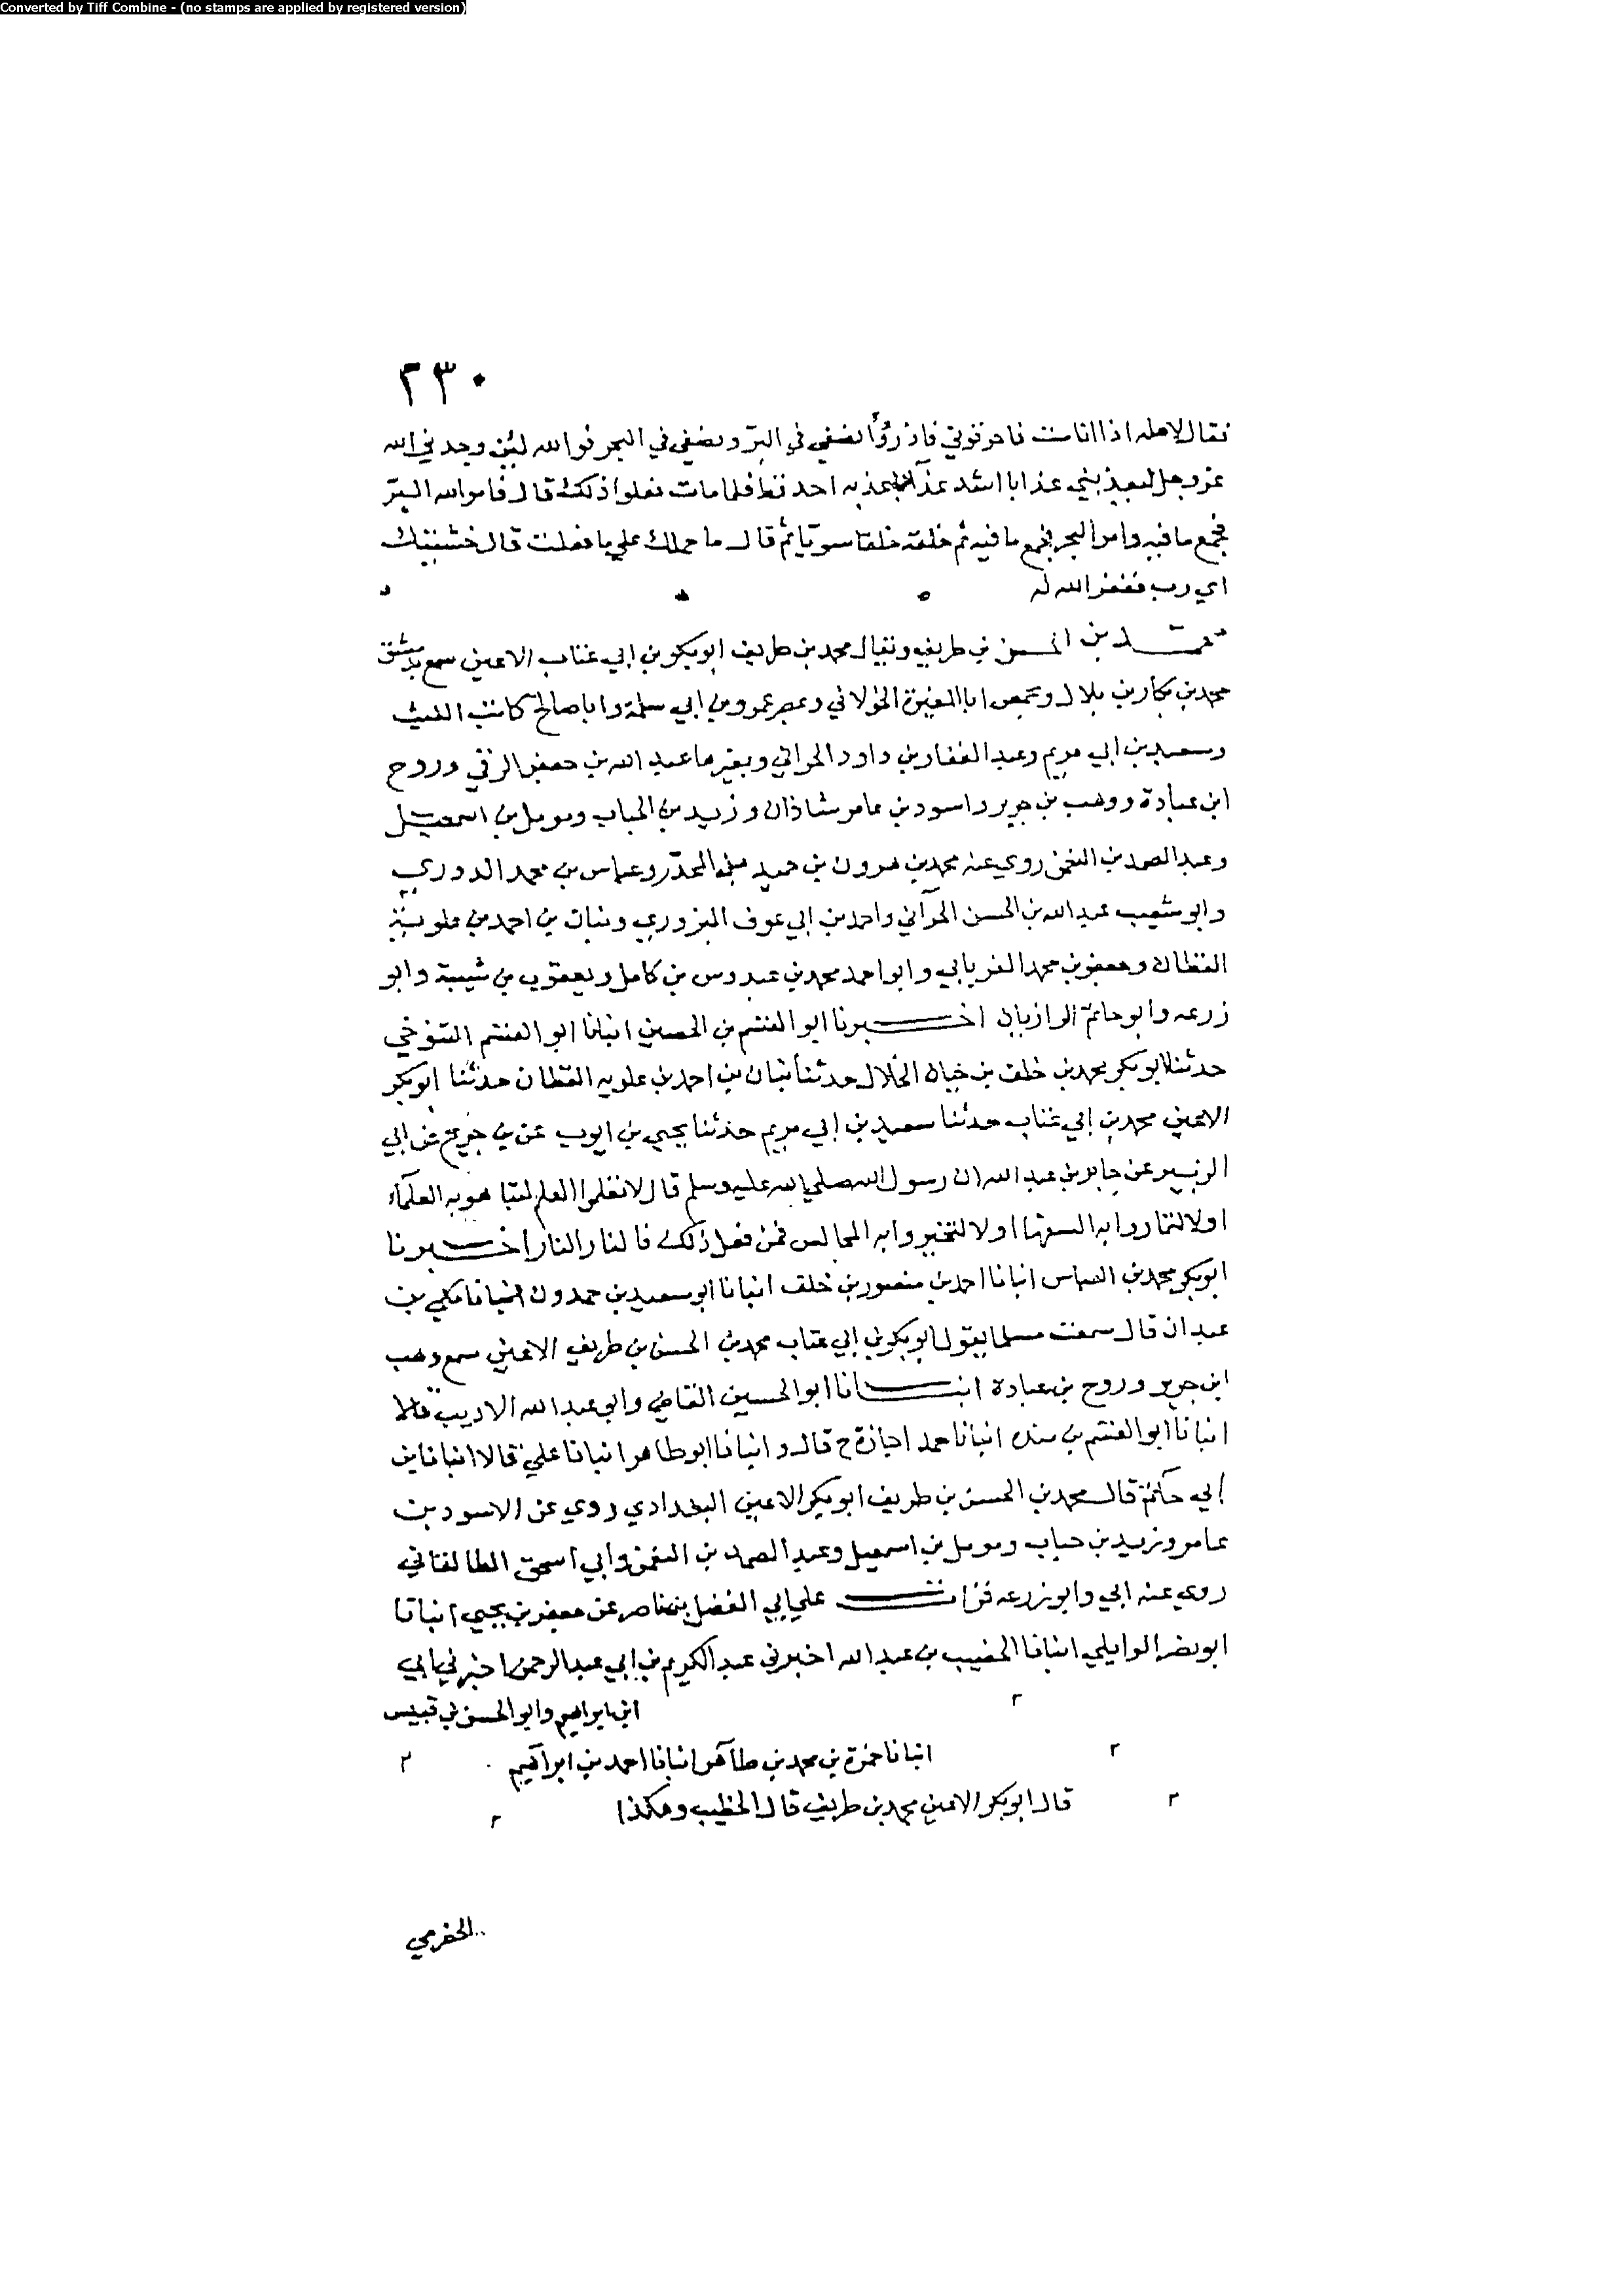 Converted by Tiff Combine - (no stamps are applied by registered version)
٢٣٠
فقال لاهله اذا انا مت فاحرقوني فاذروا نصفي في البرّ ونصفي في البحر فوالله لئن وجدني الله
عز وجل ليعذبني عذابا اشد عذابا يعذبه احد قط فلما مات فعلوا ذلك قال فامر الله البرّ
فجمع ما فيه وامر البحر فجمع ما فيه ثم خلقه خلقا سويا ثم قال ما حملك علي ما فعلت قال خشيتك
اي رب فغفر الله له
محمد بن الحسن بن طريف ويقال محمد بن طريف ابو بكر بن ابي عتاب الاعين سمع بدمشق
محمد بن بكار بن بلال وبحمص ابا المغيرة الخولاني وبمصر عمرو بن ابي سلمة وابا صالح كاتب الليث
وسعيد بن ابي مريم وعبد الغفار بن داود الحراني وبغيرها عبد الله بن جعفر الرقي وروح
ابن عبادة ووهب بن جرير واسود بن عامر شاذان وزيد بن الحباب ومومل بن اسمعيل
وعبد الصمد بن النعمن روي عنه محمد بن هرون بن حميد بن المجدّر وعباس بن محمد الدوري
وابو شعيب عبد الله بن الحسن الحرّاني واحمد بن ابي عوف البزوري وبنان بن احمد بن علويه
القطان وجعفر بن محمد الفريابي وابو احمد محمد بن عبدوس بن كامل ويعقوب بن شيبة وابو
زرعه وابو حاتم الرازيان اخبرنا ابو القسم بن الحصين انبانا ابو القسم التنوخي
حدثنا ابو بكر محمد بن خلف بن جيان الخلال حدثنا بنان بن احمد بن علويه القطان حدثنا ابو بكر
الاعين محمد بن ابي عتاب حدثنا سعيد بن ابي مريم حدثنا يحيي بن ايوب عن بن جريج عن ابي
الزبير عن جابر بن عبد الله ان رسول الله صلي الله عليه وسلم قال لا تعلموا العلم لتباهو به العلماء
اولا لتماروا به السفها اولا لتخيروا به المجالس فمن فعل ذلك فالنار النار اخبرنا
ابو بكر محمد بن العباس انبانا احمد بن منصور بن خلف انبانا ابو سعيد بن حمدون انبانا مكي بن
عبدان قال سمعت مسلما يقول ابو بكر بن ابي عتاب محمد بن الحسن بن طريف الاعين سمع وهب
ابن جرير وروح بن عبادة انبانا ابو الحسين القاضي وابو عبد الله الاديب قالا
انبانا ابو القسم بن منده انبانا حمد اجازة ح قال وانبانا ابو طاهر انبانا علي قالا انبانا بن
ابي حاتم قال محمد بن الحسن بن طريف ابو بكر الاعين البغدادي روي عن الاسود بن
عامر وزيد بن حباب ومومل بن اسمعيل وعبد الصمد بن النعمن وابي اسحق الطالقاني
روي عنه ابي وابو زرعه قرات علي ابي الفضل بن ناصر عن جعفر بن يحيي انبانا
ابو نصر الوايلي انبانا الخصيب بن عبد الله اخبرني عبد الكريم بن ابي عبد الرحمن اخبرني ابي
٢ ابن ابراهيم وابو الحسن بن قبيس
٢ انبانا حمزة بن محمد بن طاهر انبانا احمد بن ابراهيم ٢
٢ قال ابو بكر الاعين محمد بن طريف قال الخطيب وهكذا ٢
الحضرمي